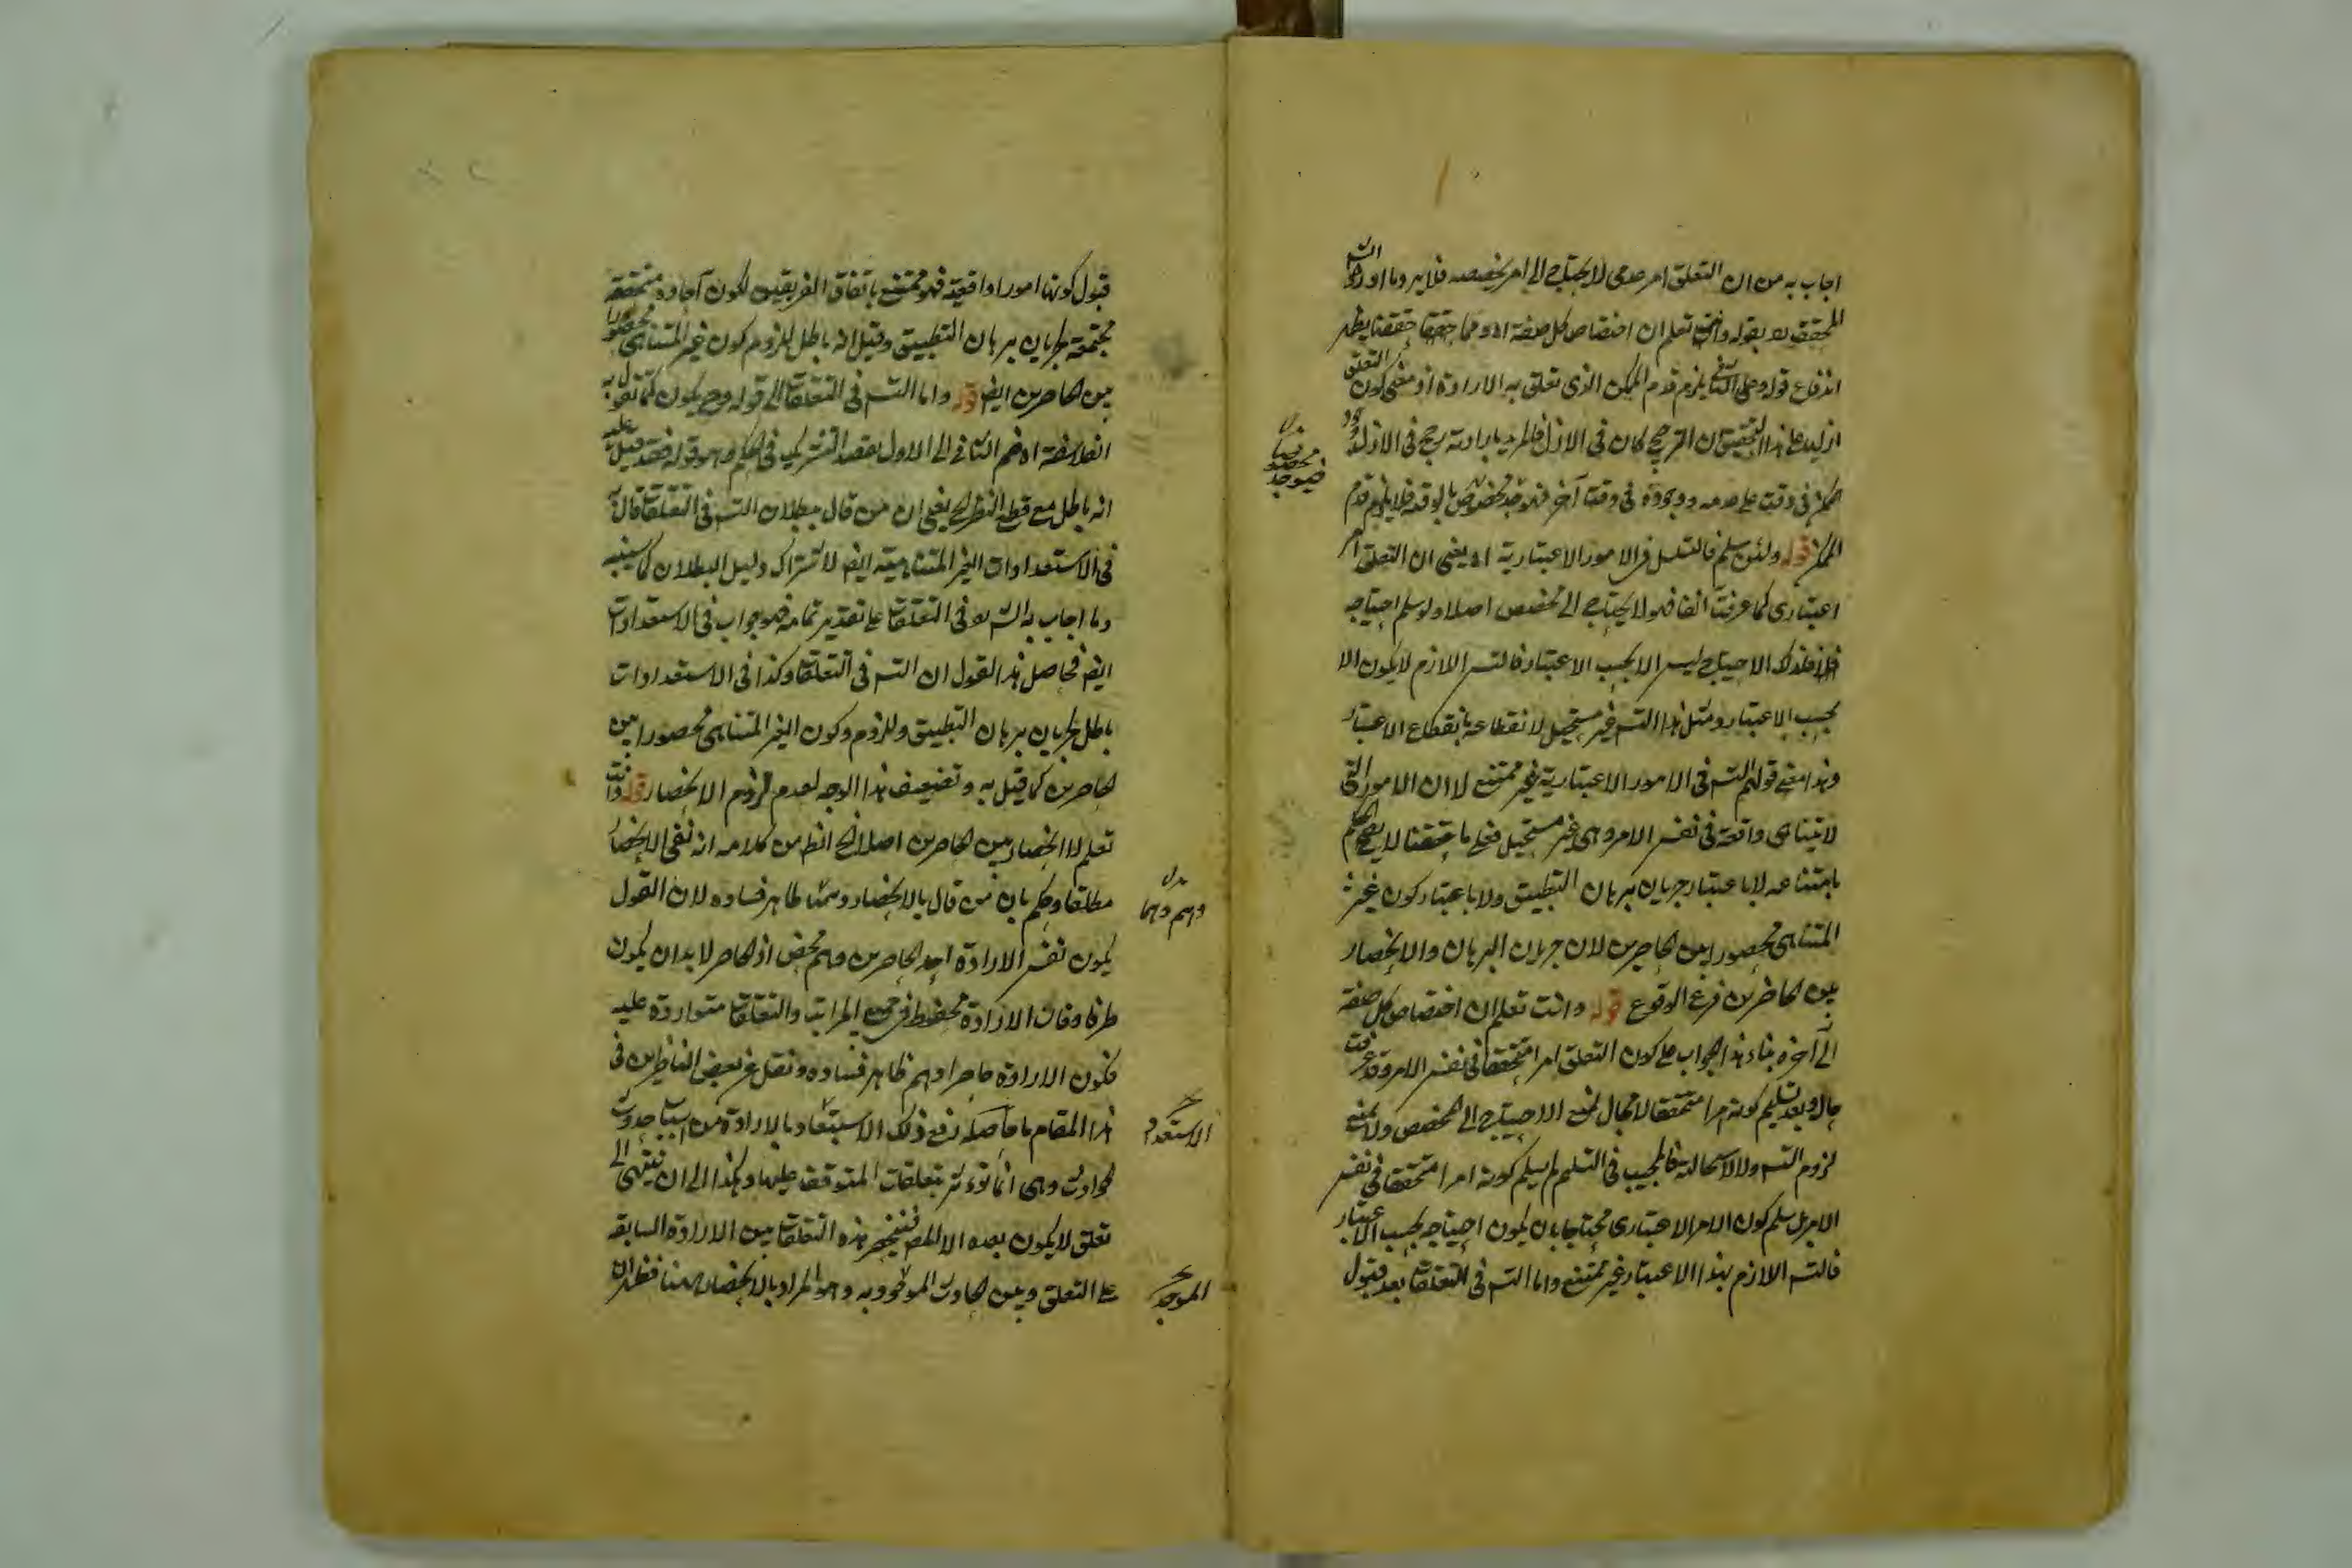 اجاب به من ان التعلق امر عدمى لا يحتاج الى امر يخصصه فلا يرد ما اورد الش
المحقق بقوله وانت تعلم ان اختصاص كل صفة اه ومما حققنا يظهر
اندفاع قوله وعلى الثانى يلزم قدم الممكن الذى تعلق به الارادة اذ معنى كون التعلق
ازليا على هذا التحقيق ان الترجيح كان فى الازل فالمريد بارادته رجح فى الازل
الممكن فى وقت على عدمه ووجوده فى وقت آخر فلا يلزم قدم
الممكن قوله ولئن سلم فالتسلسل فى الامور الاعتبارية اه يعنى ان التعلق امر
اعتبارى كما عرفت آنفا فهو لا يحتاج الى مخصص اصلا ولو سلم احتياجه
فذلك الاحتياج ليس الا بحسب الاعتبار فالتس اللازم لا يكون الا
بحسب الاعتبار ومثل هذا التس غير مستحيل لانقطاعه بانقطاع الاعتبار
وهذا معنى قولهم التس فى الامور الاعتبارية غير ممتنع لا ان الامور التى
لا تتناهى واقعة فى نفس الامر وهى غير مستحيل فعلى ما حققنا لا يصح الحكم
بامتناعه لا باعتبار جريان برهان التطبيق ولا باعتبار كون غير
المتناهى محصورا بين الحاصرين لان جريان البرهان والانحصار
بين الحاضرين فرع الوقوع قوله وانت تعلم ان اختصاص كل صفة
الى آخره بناء هذا الجواب على كون التعلق امرا متحققا فى نفس الامر وقد عرفت
حاله وبعد تسليم كونه امرا متحققا لا مجال لمنع الاحتياج الى المخصص ولا لمنع
لزوم التس ولا لاستحالته فالمجيب فى التسليم لم يسلم كونه امرا متحققا فى نفس
الامر بل سلم كون الامر الاعتبارى محتاجا بان يكون احتياجه بحسب الاعتبار
فالتس اللازم بهذا الاعتبار غير ممتنع واما التس فى التعلقات بعد قبول
قبول كونها امورا واقعية فهو ممتنع باتفاق الفريقين لكون آحاده متحققة
مجتمعة لجريان برهان التطبيق وقيل انه باطل للزوم كون غير المتناهى محصورا
بين الحاصرين ايض قوله واما التس فى التعلقات الى قوله وح يكون كما تقول به
الفلاسفة اه ضم الثانى الى الاول بقصد التشريك فى الحكم وهو قوله فقد قيل عليه
انه باطل مع قطع النظر الخ يعنى ان من قال ببطلان التس فى التعلقات قال به
فى الاستعدادات الغير المتناهية ايض لاشتراك دليل البطلان كما سيبينه
وما اجاب به الش فى التعلقات على تقدير تمامه فهو جواب فى الاستعدادات
ايض فحاصل هذا القول ان التس فى التعلقات وكذا فى الاستعدادات
باطل لجريان برهان التطبيق وللزوم وكون الغير المتناهى محصورا بين
الحاصرين كما قيل به وتضعيف هذا الوجه لعدم لزوم الانحصار قوله وانت
تعلم لا انحصار بين الحاصرين اصلا الخ الظ من كلامه انه نفى الانحصار
مطلقا وحكم بان من قال بالانحصار وهما ظاهر فساده لان القول
وهم وهما
بكون نفس الارادة احد الحاصرين وهم محض اذ الحاصر لا بد ان يكون
طرفا وفات الارادة محفوظ فى جميع المراتب والتعلقات متواردة عليه
فكون الارادة حاصرا وهم ظاهر فساده ونقل عن بعض الناظرين فى
هذا المقام ما حاصله رفع ذلك الاستبعاد بالارادة من اسباب حدوث
الحوادث وهى انما تؤثر بتعلقات المتوقف عليها وهكذا الى ان ينتهى الى
تعلق لا يكون بعده الا المع فينحصر هذه التعلقات بين الارادة السابقة
على التعلق وبين الحادث الموجود به وهو المراد بالانحصار ههنا فظهر ان
الموجد